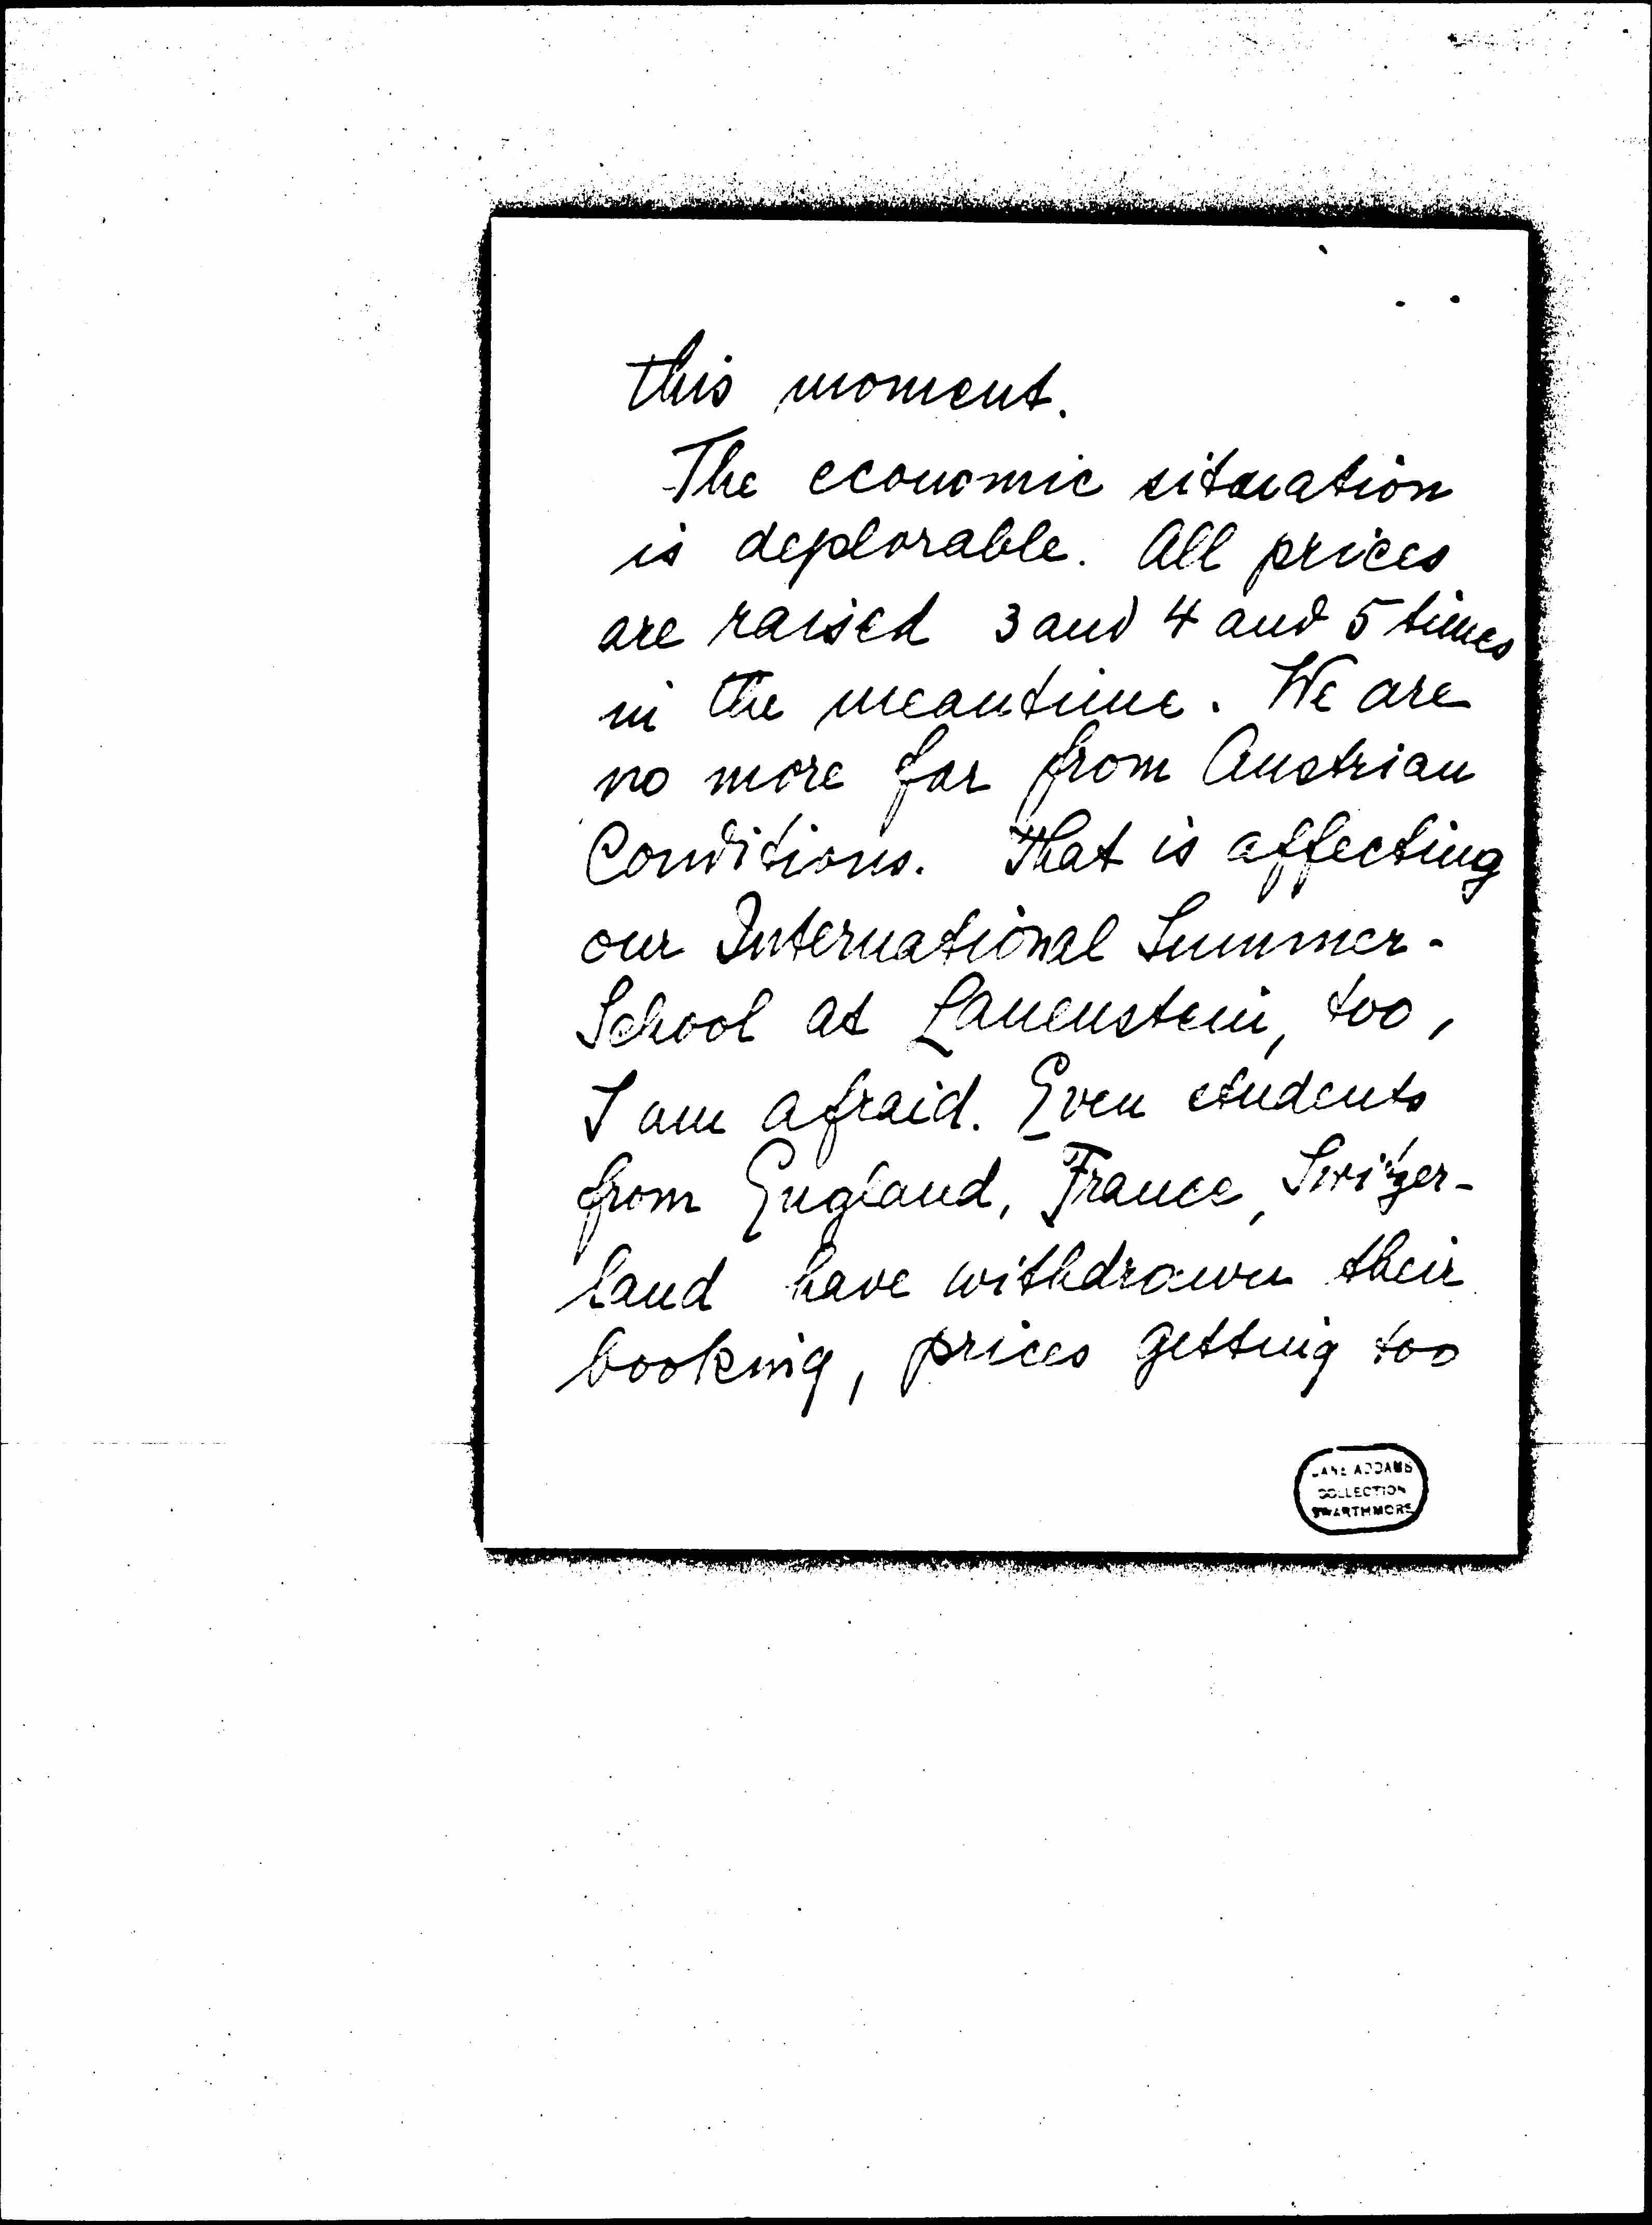 this moment.
The economic situation
is deplorable. All prices
are raised 3 and 4 and 5 times
in the meantime. We are
no more far from Austrian
Conditions. That is affecting
our International Summer-
School at Lauenstein, too,
I am afraid. Even students
from England, France, Switzer-
land have withdrawn their
booking, prices getting too
JANE ADDAMS
COLLECTION
SWARTHMORE